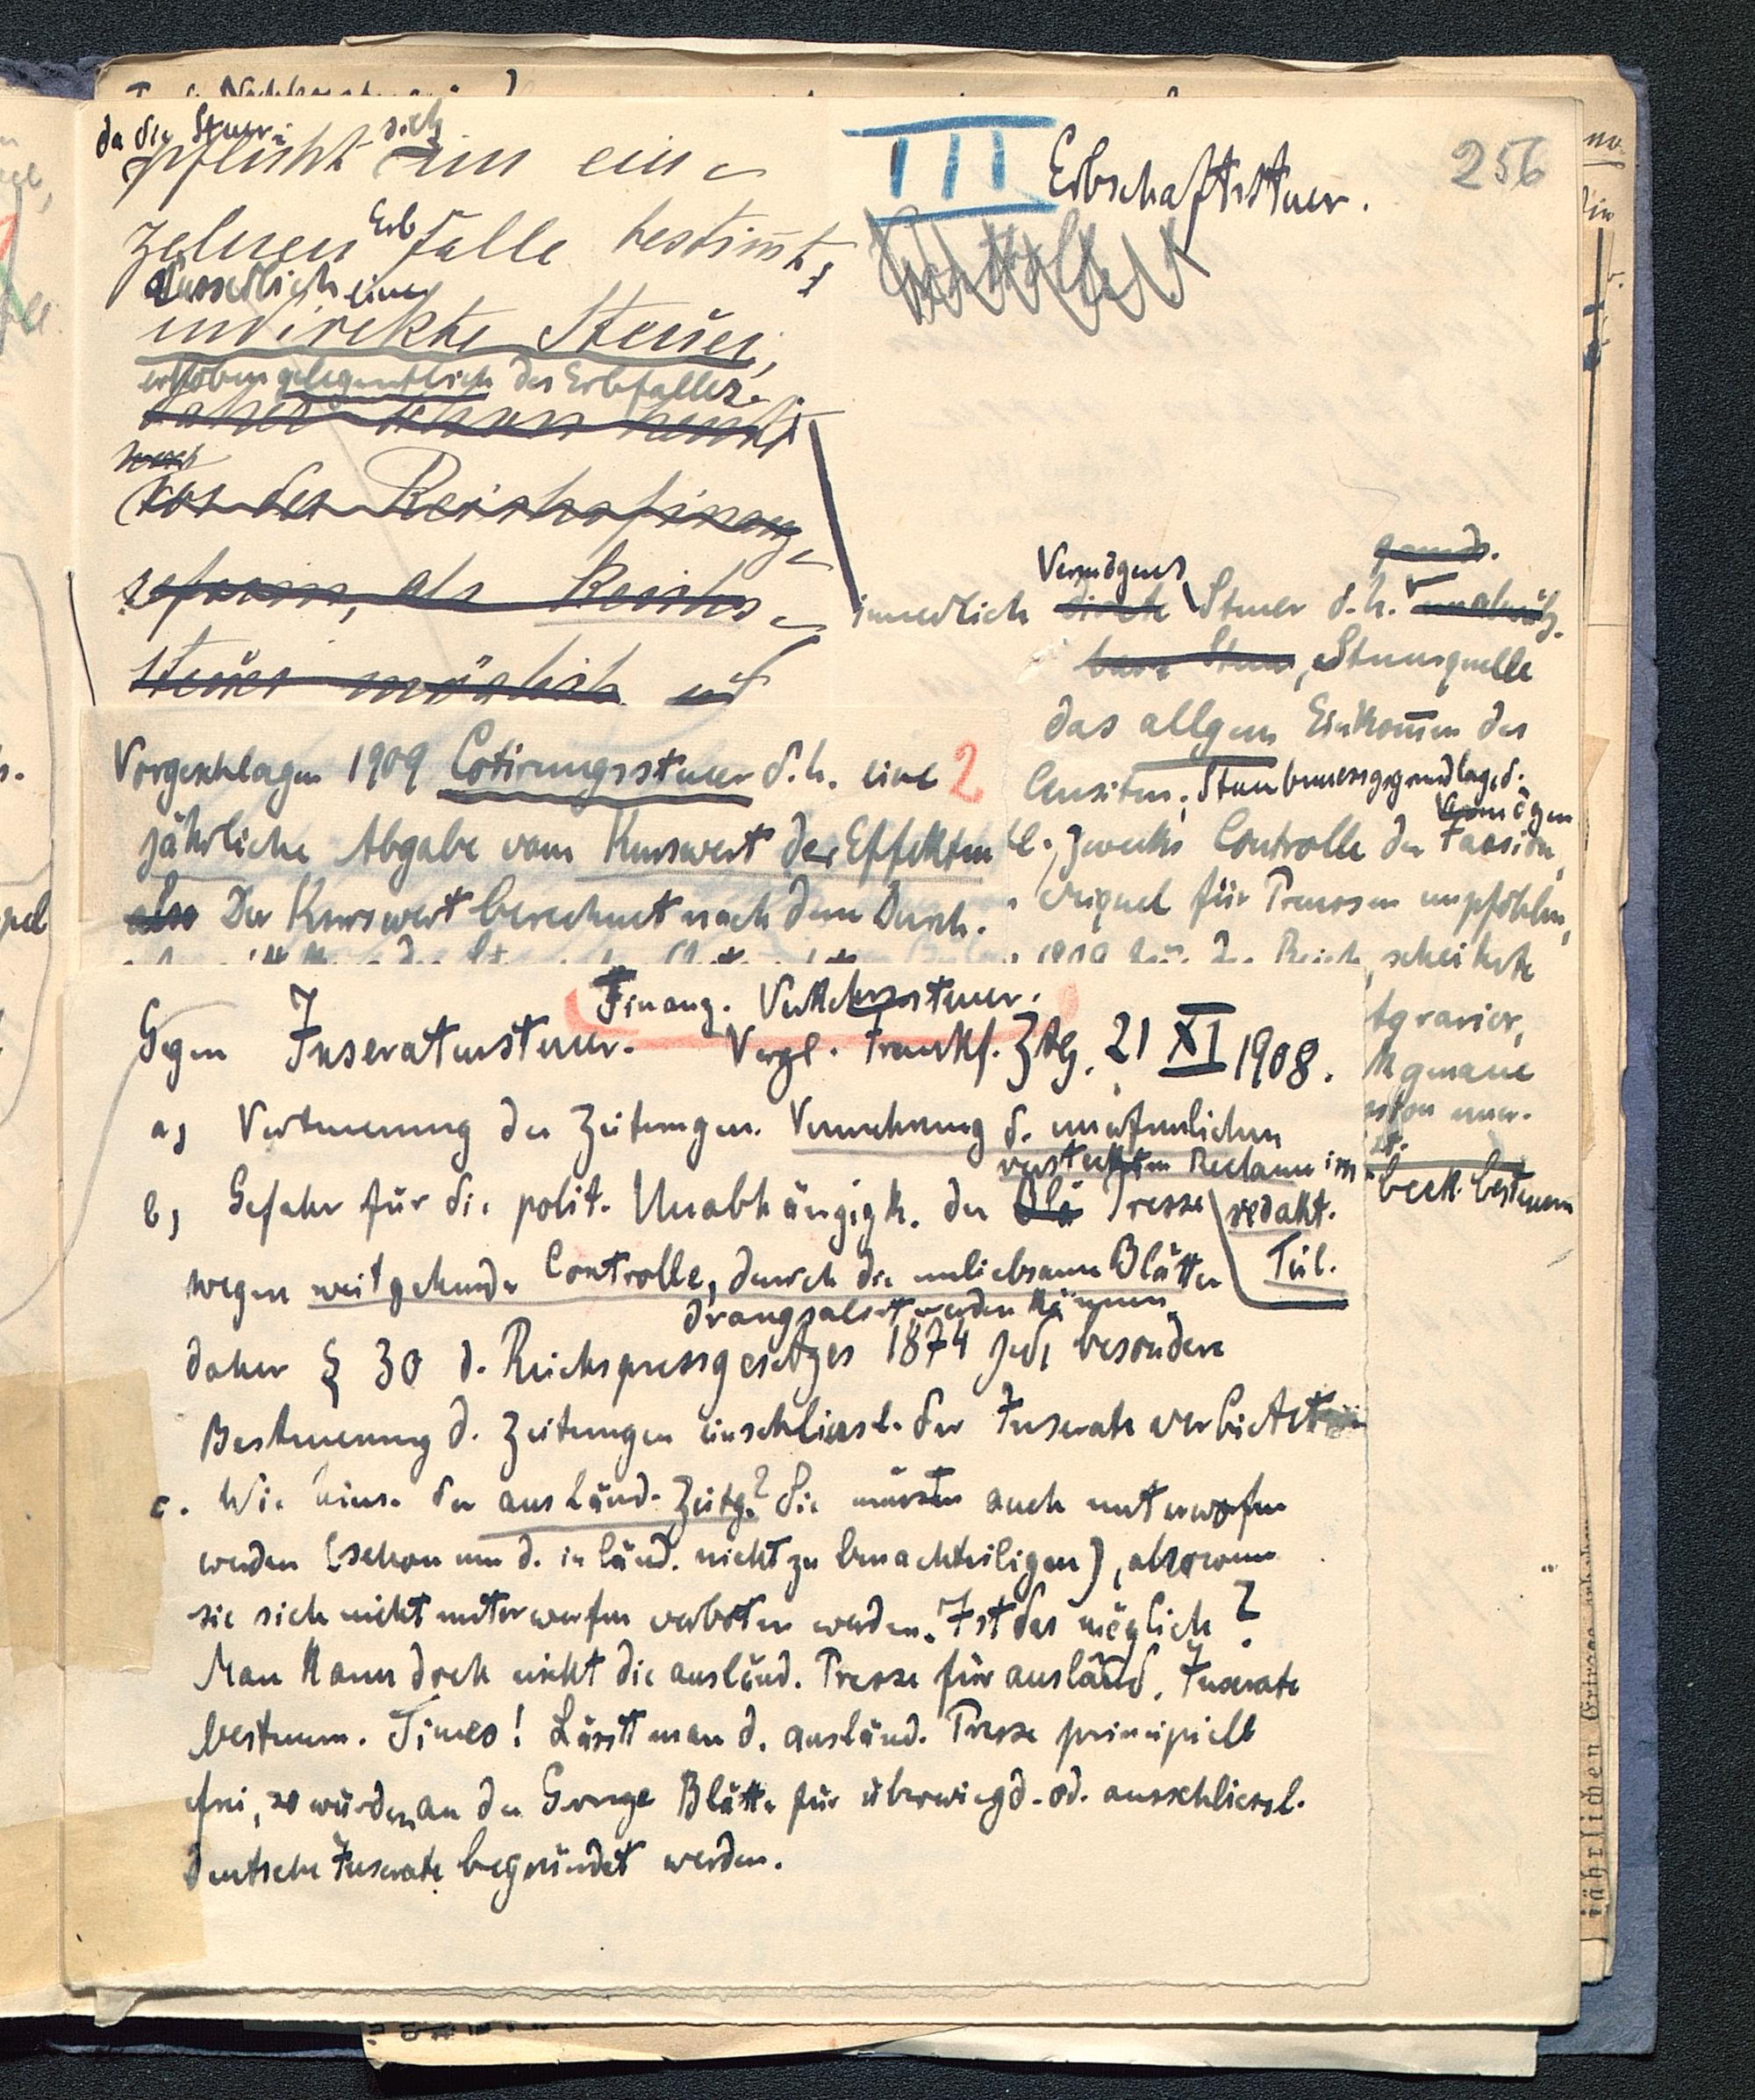 256
III Erbschaftssteuer.
da die Steuer-
pflicht sich im ein-
zelnen Erbfalle bestimmt,
äusserlich eine
indirekte Steuer,
erhoben gelegentlich des Erbfalles.
daher schon
vor der Reichsfinanz-
reform, als Reichs-
steuer möglich
innerlich direkte Vermögens Steuer d.h.
Steuer, Steuerquelle
das allgem Einkom̅en des
Censiten, Steuerbemessungsgrundlage d.
Vermögen
zwecks Controlle der Fassion,
Miquel für Preussen empfohlen,
1909 für das Reich, scheiterte
Agrarier,
Vorgeschlagen 1909 Cotirungssteuer d.h. eine 2
jährliche Abgabe vom Kurswert der Effekten
also Der Kurswert berechnet nach dem Durch-
Finanz. Verkehrssteuer.
Gegen Inseratensteuer. Vergl. Frankf. Ztg. 21 XI 1908.
a) Verteuerung der Zeitungen. Vermehrung d. unerfreulichen
versteckten Reclame im
redakt.
Teil.
b) Gefahr für die polit. Unabhängigk. der Presse
wegen weitgehender Controlle, durch die unliebsame Blätter
drangsaliert werden können
daher § 30 d. Reichspressgesetzes 1874 jede besondere
Besteuerung d. Zeitungen einschliessl. der Inserate verbietet
c. Wie hins. der ausländ. Zeitg.? Sie müssten auch unterworfen
werden (schon um d. inländ. nicht zu benachtheiligen), also wenn
sie sich nicht unterwerfen verboten werden. Ist das möglich?
Man kann doch nicht die ausländ. Presse für ausländ. Inserate
besteuern. Times! Lässt man d. ausländ. Presse principiell
frei, so würden an der Grenze Blätter für überwiegd. od. ausschliessl.
deutsche Inserate begründet werden.
jährlichen Ertrage